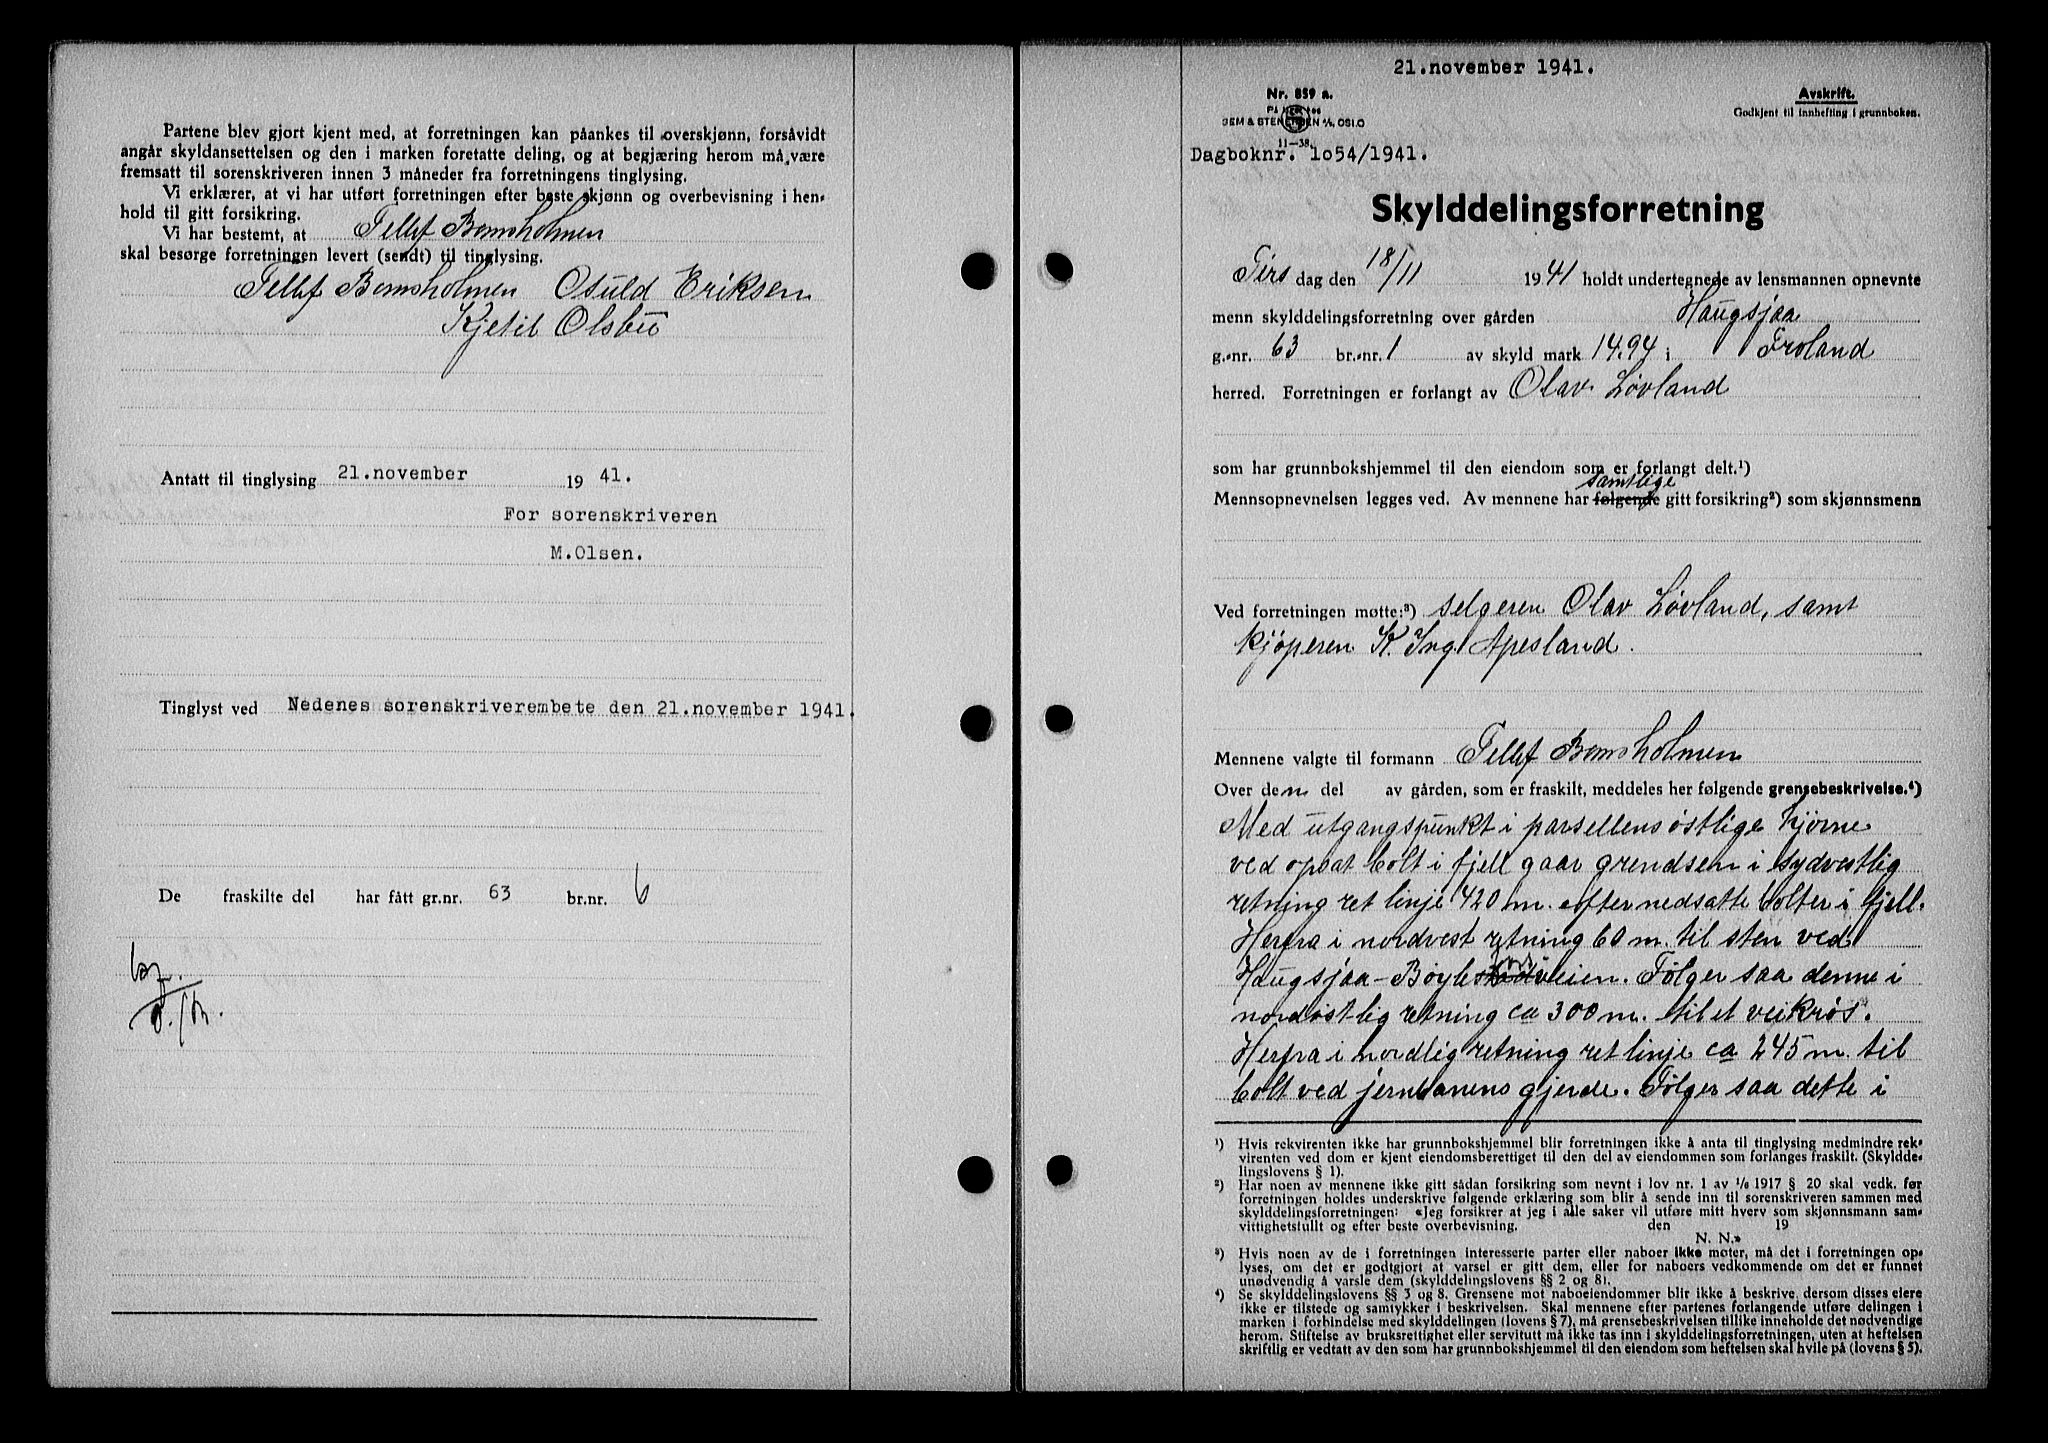 Partene blev gjort kjent med, at forretningen kan påankes til overskjønn, forsåvidt
angår skyldansettelsen og den i marken foretatte deling, og at begjæring herom må være
fremsatt til sorenskriveren innen 3 måneder fra forretningens tinglysing.
Vi erklærer, at vi har utført forretningen efter beste skjønn og overbevisning i hen-
hold til gitt forsikring.
Vi har bestemt, at Tellef Bomsholmen
skal besørge forretningen levert (sendt) til tinglysing.
Tellef Bomsholmen Osuld Eriksen
Kjetil Olsbu
Antatt til tinglysing 21.november 19 41.
For sorenskriveren
M.Olsen.
Tinglyst ved Nedenes sorenskriverembete den 21.november 1941.
De fraskilte del har fått gr.nr. 63 br.nr. 6
21.november 1941.
Nr. 859 a.
SEM & STENERSEN A/S, OSLO
11-38.
Avskrift.
Godkjent til innhefting i grunnboken.
Dagboknr. 1o54/1941.
Skylddelingsforretning
Tirs dag den 18/11 1941 holdt undertegnede av lensmannen opnevnte
menn skylddelingsforretning over gården Haugsjaa
g.-nr. 63 br.-nr. 1 av skyld mark 14.94 i Froland
herred. Forretningen er forlangt av Olav Løvland
som har grunnbokshjemmel til den eiendom som er forlangt delt.¹)
samtlige
Mennsopnevnelsen legges ved. Av mennene har følgende gitt forsikring²) som skjønnsmenn
Ved forretningen møtte:³) selgeren Olav Løvland, samt
kjøperen K. Ing. Apesland.
Mennene valgte til formann Tellef Bomsholmen
Over den del av gården, som er fraskilt, meddeles her følgende grensebeskrivelse.⁴)
Med utgangspunkt i parsellens østlige hjørne
ved opsat bolt i fjell gaar grendsen i sydvestlig
retning ret linje 420 m. efter nedsatte bolter i fjell.
Herfra i nordvest retning 60 m. til sten ved
Haugsjaa-Bøylestadveien. Følger saa denne i
nordøstlig retning ca 300 m. til et veikrøs.
Herfra i nordlig retning ret linje ca 245 m. til
bolt ved jernbanens gjerde. Følger saa dette i
¹) Hvis rekvirenten ikke har grunnbokshjemmel blir forretningen ikke å anta til tinglysing medmindre rek-
virenten ved dom er kjent eiendomsberettiget til den del av eiendommen som forlanges fraskilt. (Skyldde-
lingslovens § 1).
²) Har noen av mennene ikke gitt sådan forsikring som nevnt i lov nr. 1 av 1/6 1917 § 20 skal vedk. før
forretningen holdes underskrive følgende erklæring som blir å sende inn til sorenskriveren sammen med
skylddelingsforretningen: «Jeg forsikrer at jeg i alle saker vil utføre mitt hverv som skjønnsmann sam-
vittighetsfullt og efter beste overbevisning. den 19
N. N.»
³) Hvis noen av de i forretningen interesserte parter eller naboer ikke møter, må det i forretningen op-
lyses, om det er godtgjort at varsel er gitt dem, eller for naboers vedkommende om det er funnet
unødvendig å varsle dem (skylddelingslovens §§ 2 og 8).
⁴) Se skylddelingslovens §§ 3 og 8. Grensene mot naboeiendommer blir ikke å beskrive, dersom disses eiere
ikke er tilstede og samtykker i beskrivelsen. Skal mennene efter partenes forlangende utføre delingen i
marken i forbindelse med skylddelingen (lovens § 7), må grensebeskrivelsen tillike inneholde det nødvendige
herom. Stiftelse av bruksrettighet eller servitutt må ikke tas inn i skylddelingsforretningen, uten at heftelsen
skriftlig er vedtatt av den som har grunnbokshjemmel til den eiendom som heftelsen skal hvile på (lovens § 5).